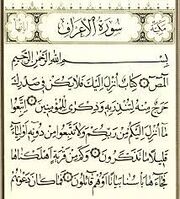 سورة الأعراف
بسم الله الرحمن الرحيم
المص ۝ كتاب أنزل إليك فلا يكن في صدرك
حرج منه لتنذر به وذكرى للمؤمنين ۝ اتبعوا
ما أنزل إليكم من ربكم ولا تتبعوا من دونه أولياء
قليلا ما تذكرون ۝ وكم من قرية أهلكناها
فجاءها بأسنا بياتا أو هم قائلون ۝ فما كان دعويهم